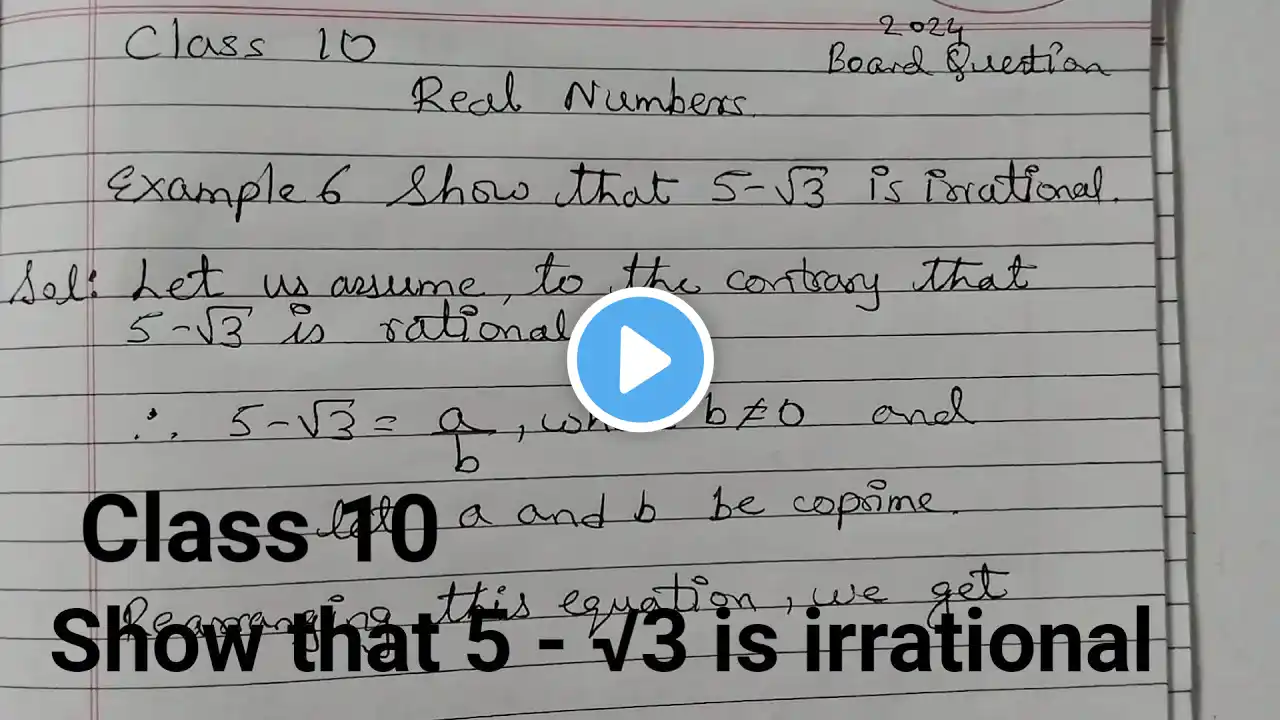 Class 10
2024
Board Question
Real Numbers
Example 6 Show that 5-√3 is irrational.
Sol: Let us assume, to the contrary that
5-√3 is rational
∴ 5-√3 = a/b, b≠0 and
let a and b be coprime.
Class 10
Rearranging this equation, we get
Show that 5 - √3 is irrational